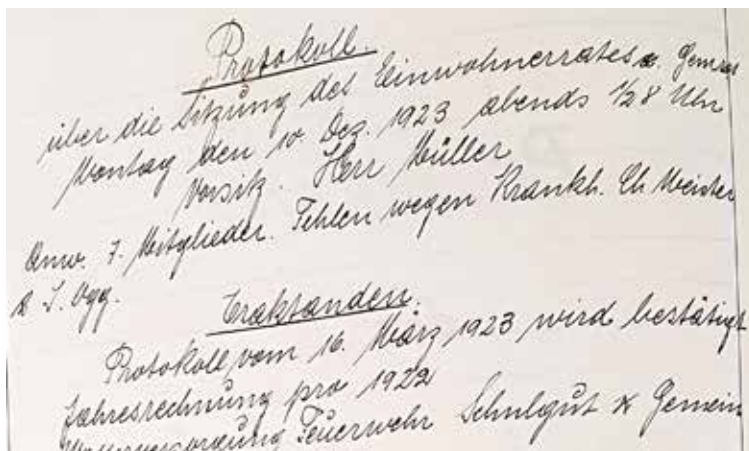 Protokoll.
über die Sitzung des Einwohnerrates u. Gemein
Montag den 10. Dez. 1923 abends ½8 Uhr
Vorsitz. Herr Müller
Anw. 7. Mitglieder. Fehlen wegen Krankh. Ch. Meister
& J. Ogg.
Traktanden.
Protokoll vom 16. März 1923 wird bestätigt
Jahresrechnung pro 1922
Wasserversorgung Feuerwehr Schulgut & Gemein